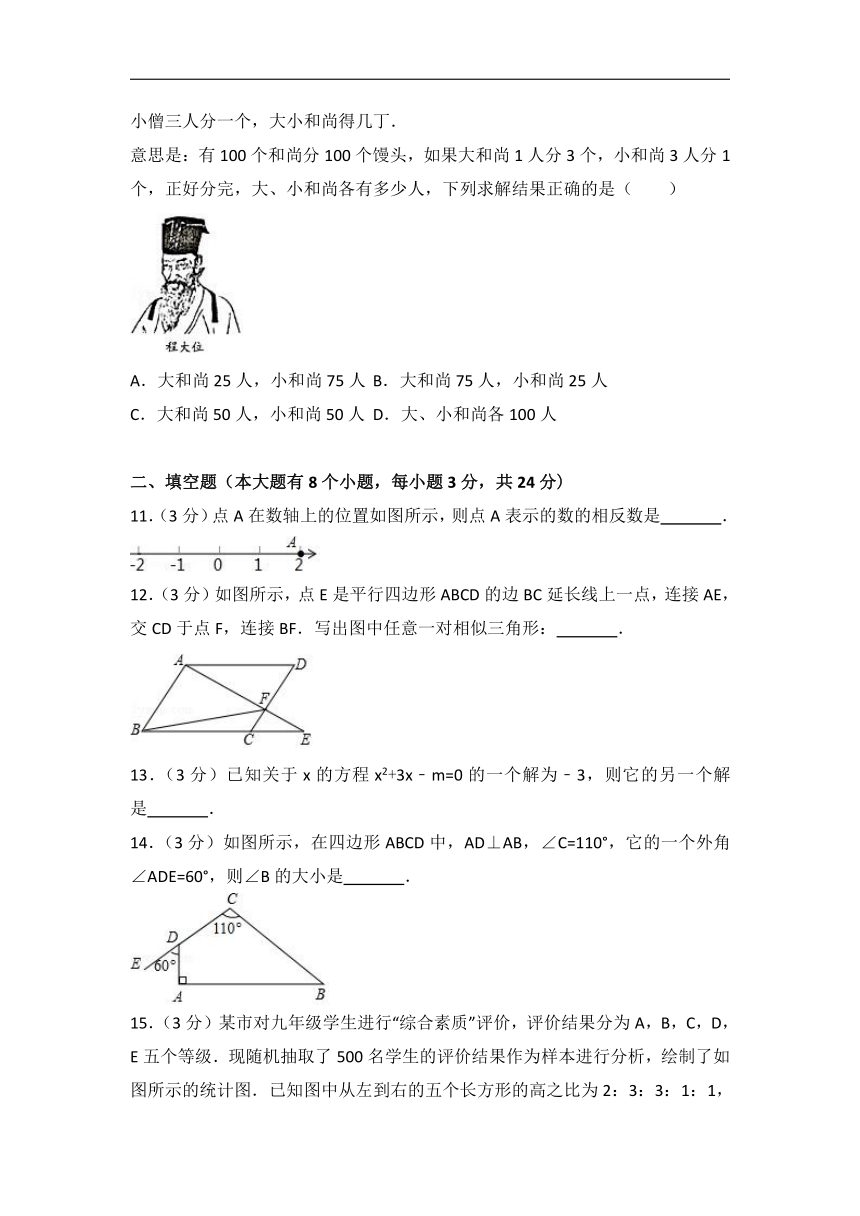 小僧三人分一个，大小和尚得几丁．
意思是：有 100 个和尚分 100 个馒头，如果大和尚 1 人分 3 个，小和尚 3 人分 1
个，正好分完，大、小和尚各有多少人，下列求解结果正确的是（　　）
程大位
A．大和尚 25 人，小和尚 75 人 B．大和尚 75 人，小和尚 25 人
C．大和尚 50 人，小和尚 50 人 D．大、小和尚各 100 人
二、填空题（本大题有 8 个小题，每小题 3 分，共 24 分)
11.（3 分）点 A 在数轴上的位置如图所示，则点 A 表示的数的相反数是　　　．
A
-2 -1 0 1 2
12.（3 分）如图所示，点 E 是平行四边形 ABCD 的边 BC 延长线上一点，连接 AE，
交 CD 于点 F，连接 BF．写出图中任意一对相似三角形：　　　．
A D
F
B C E
13.（3 分）已知关于 x 的方程 x²+3x﹣m=0 的一个解为﹣3，则它的另一个解
是　　　．
14.（3 分）如图所示，在四边形 ABCD 中，AD⊥AB，∠C=110°，它的一个外角
∠ADE=60°，则∠B 的大小是　　　．
C
110°
D
E 60°
A B
15.（3 分）某市对九年级学生进行“综合素质”评价，评价结果分为 A，B，C，D，
E 五个等级．现随机抽取了 500 名学生的评价结果作为样本进行分析，绘制了如
图所示的统计图．已知图中从左到右的五个长方形的高之比为 2：3：3：1：1，